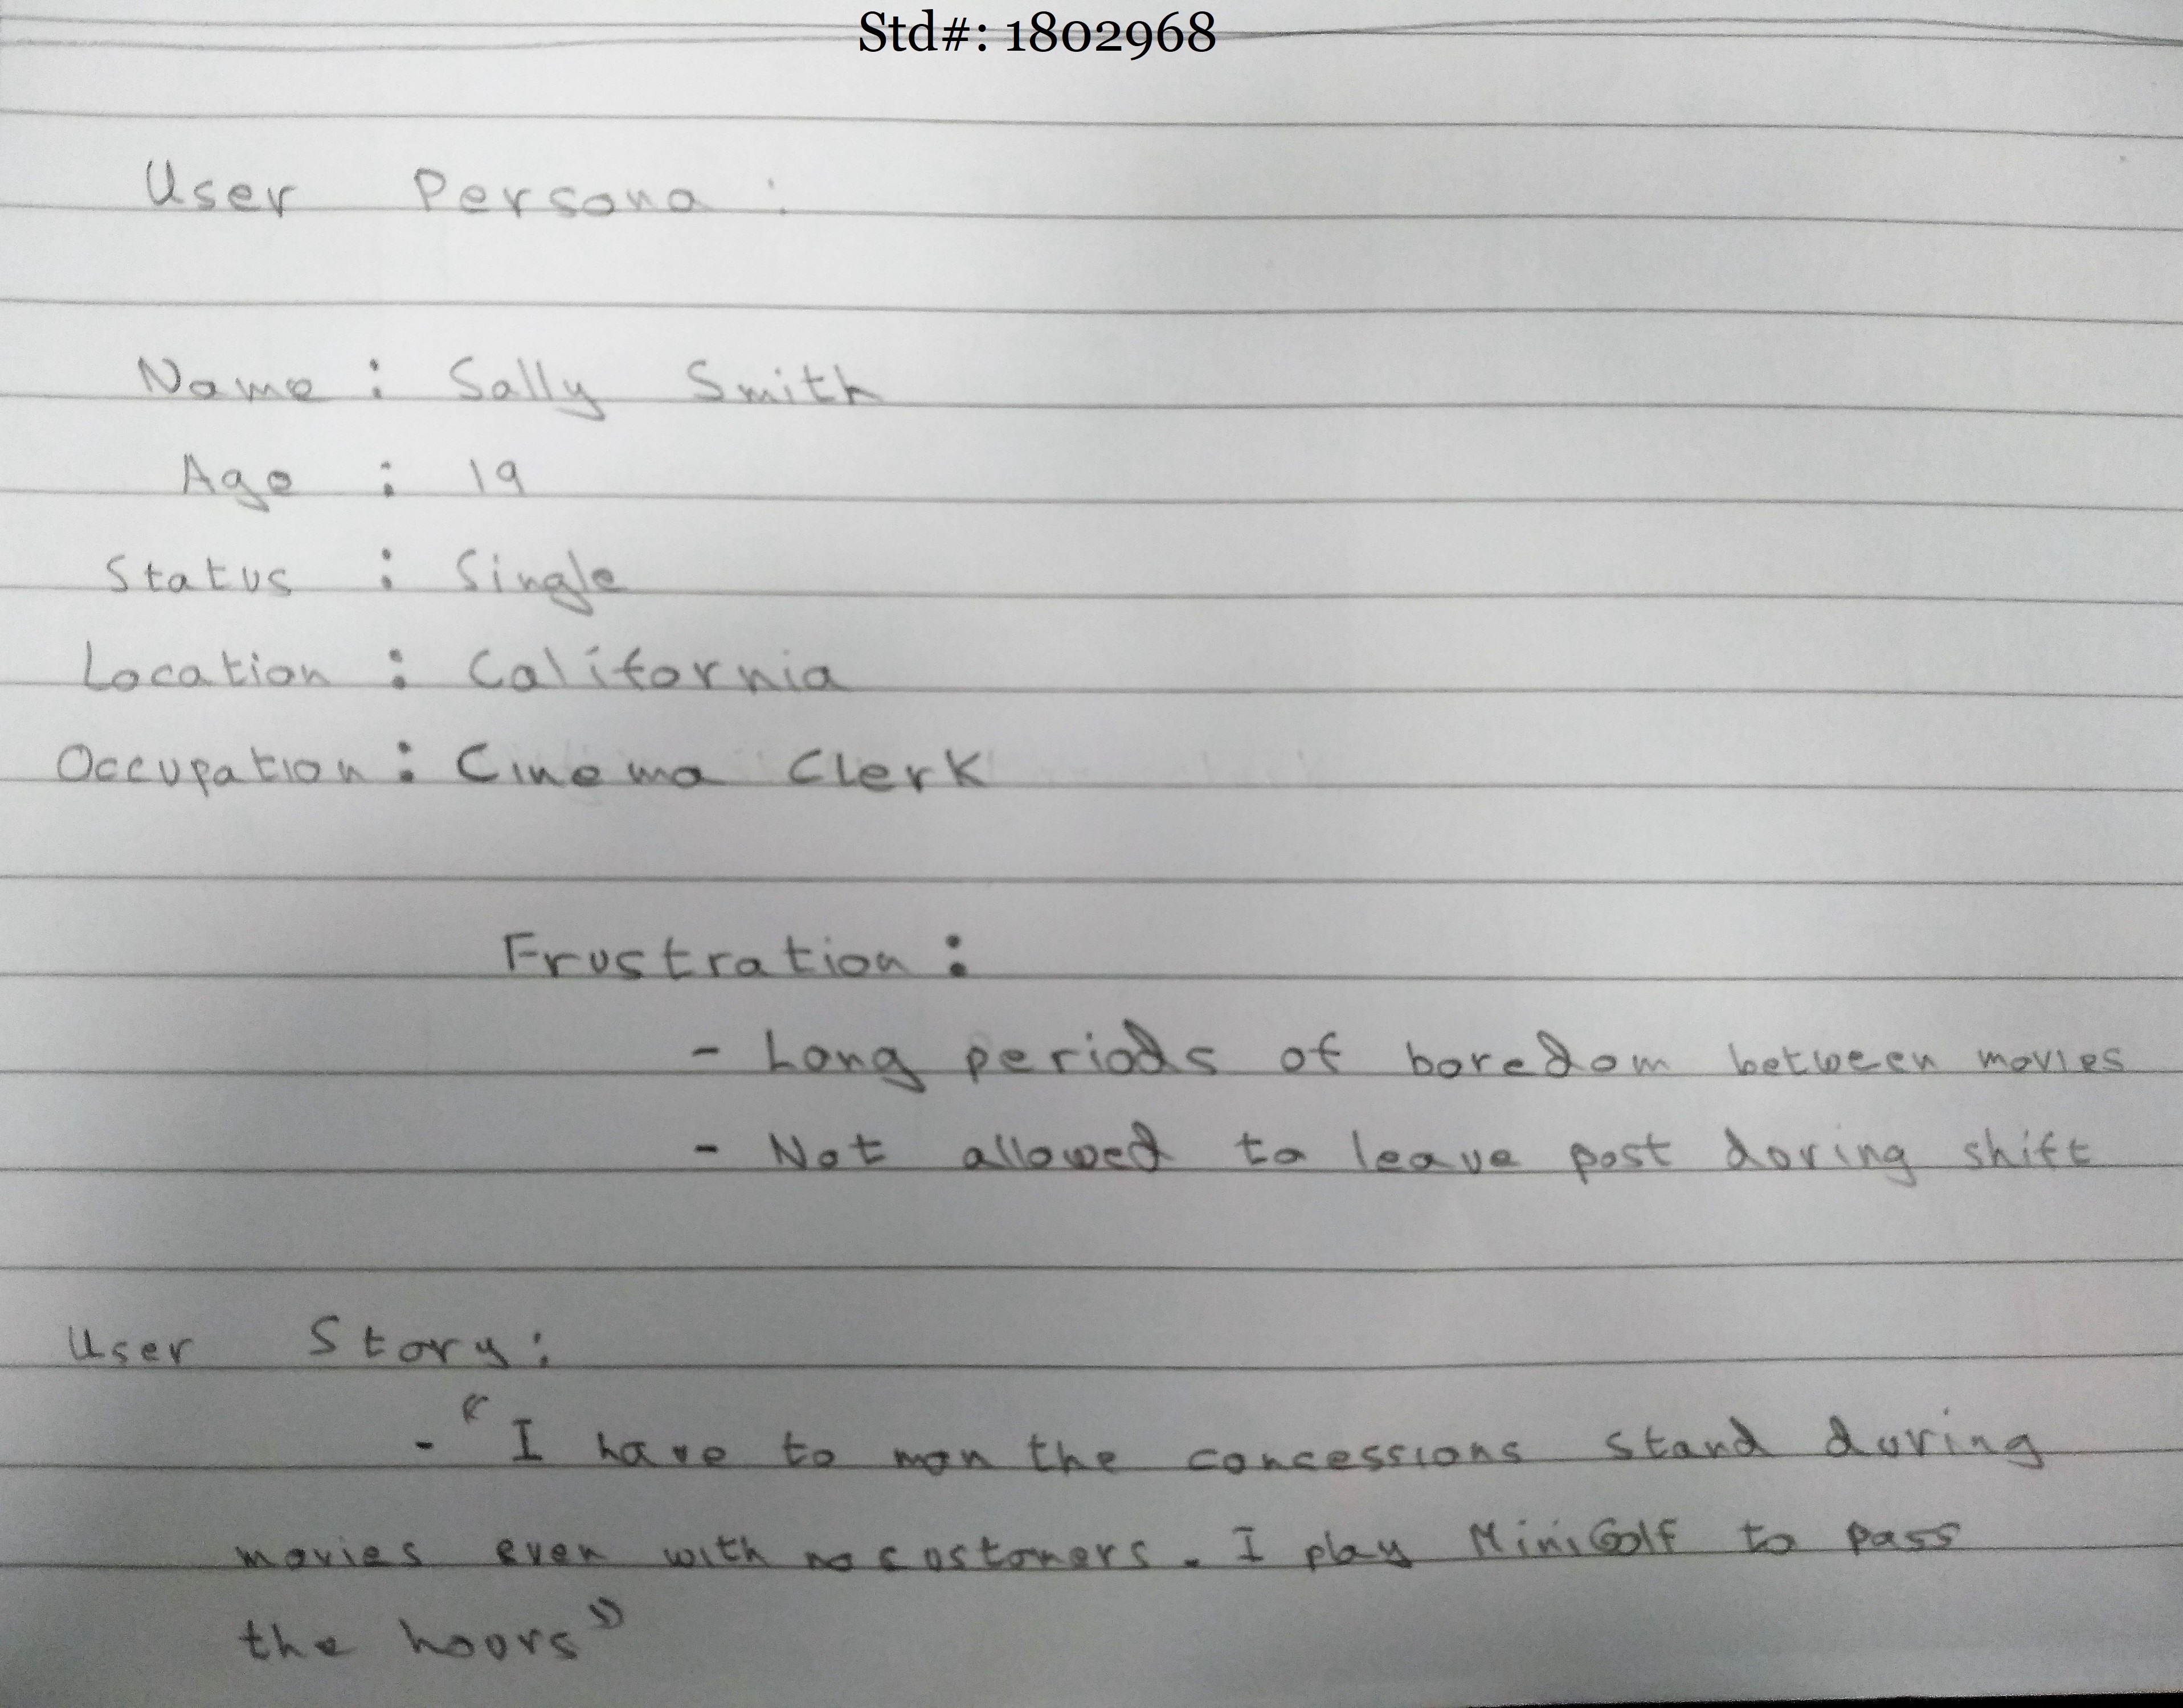 Std#: 1802968
User Persona :
Name : Sally Smith
Age : 19
Status : Single
Location : California
Occupation : Cinema Clerk
Frustration :
- Long periods of boredom between movies
- Not allowed to leave post during shift
User Story :
- "I have to man the concessions stand during
movies even with no customers. I play MiniGolf to pass
the hours"